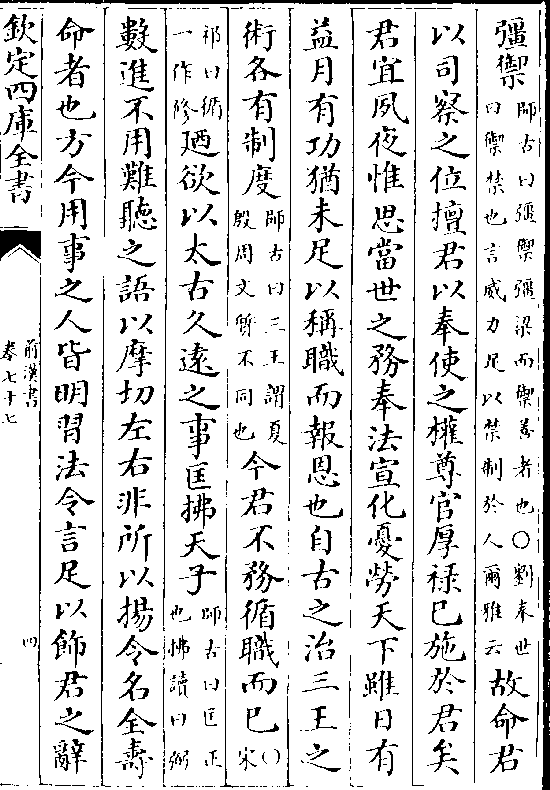 彊禦師古曰彊禦彊梁而禦善者也○劉奉世曰禦禁也言威力足以禁制於人爾雅云故命君
以司察之位擅君以奉使之權尊官厚禄已施於君矣
君宜夙夜惟思當世之務奉法宣化憂勞天下雖日有
益月有功猶未足以稱職而報恩也自古之治三王之
術各有制度師古曰三王謂夏殷周文質不同也今君不務循職而已○宋
祁曰循一作修廼欲以太古久遠之事匡拂天子師古曰匡正也拂讀曰弼
數進不用難聽之語以摩切左右非所以揚令名全壽
命者也方今用事之人皆明習法令言足以飾君之辭
欽定四庫全書
前漢書
卷七十七
四